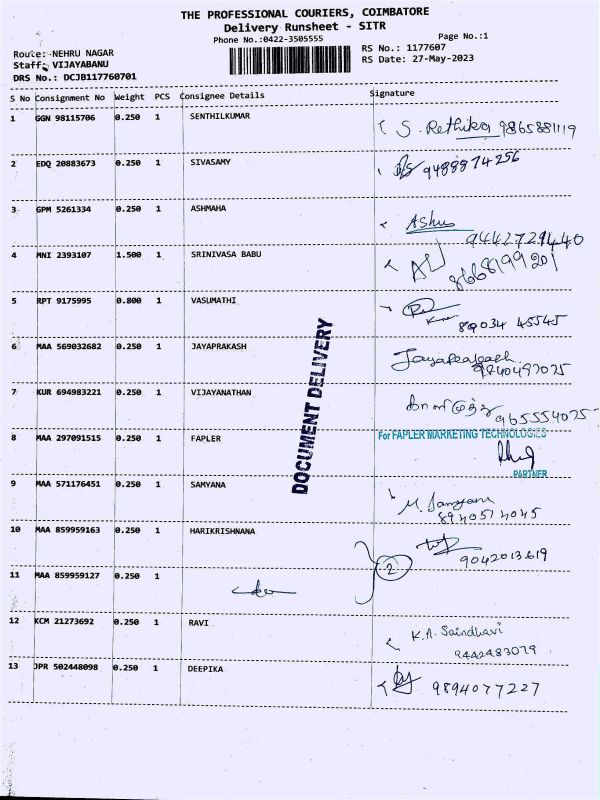 THE PROFESSIONAL COURIERS, COIMBATORE
Delivery Runsheet - SITR
Phone No.:0422-3505555 Page No.:1
Route: NEHRU NAGAR RS No.: 1177607
Staff: VIJAYABANU RS Date: 27-May-2023
DRS No.: DCJB117760701
S No Consignment No Weight PCS Consignee Details Signature
1 GGN 98115706 0.250 1 SENTHILKUMAR S. Rethika 9865881119
2 EDQ 20883673 0.250 1 SIVASAMY 9488874256
3 GPM 5261334 0.250 1 ASHMAHA Ashu
9442729440
4 MNI 2393107 1.500 1 SRINIVASA BABU
8668199201
5 RPT 9175995 0.800 1 VASUMATHI
Kumar 89034 45545
6 MAA 569032682 0.250 1 JAYAPRAKASH Jayaprakash
9840497025
7 KUR 694983221 0.250 1 VIJAYANATHAN 965554025
8 MAA 297091515 0.250 1 FAPLER For FAPLER MARKETING TECHNOLOGIES
PARTNER
DOCUMENT DELIVERY
9 MAA 571176451 0.250 1 SAMYANA
8940514045
10 MAA 859959163 0.250 1 HARIKRISHNANA
9042013619
2
11 MAA 859959127 0.250 1
12 KCM 21273692 0.250 1 RAVI K.A. Saindhavi
9442483079
13 JPR 502448098 0.250 1 DEEPIKA 9894077227